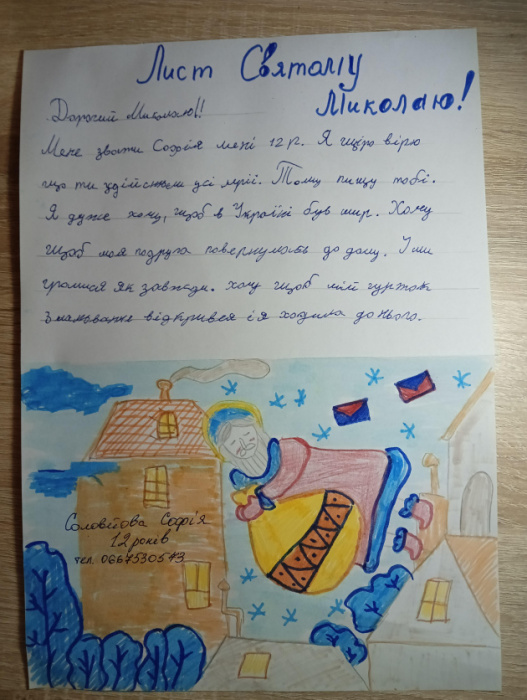 Лист Святому
Миколаю!
Дорогий Миколаю!!
Мене звати Софія мені 12 р. Я щіро вірю
що ти здійснюєш усі мрії. Тому пишу тобі.
Я дуже хочу, щоб в Україні був мир. Хочу
щоб моя подруга повернулась до дому. І ми
гралися як завжди. хочу щоб мій гурток
з малювання відкрився і я ходила до нього.
Соловйова Софія
12 років
тел. 0667530573